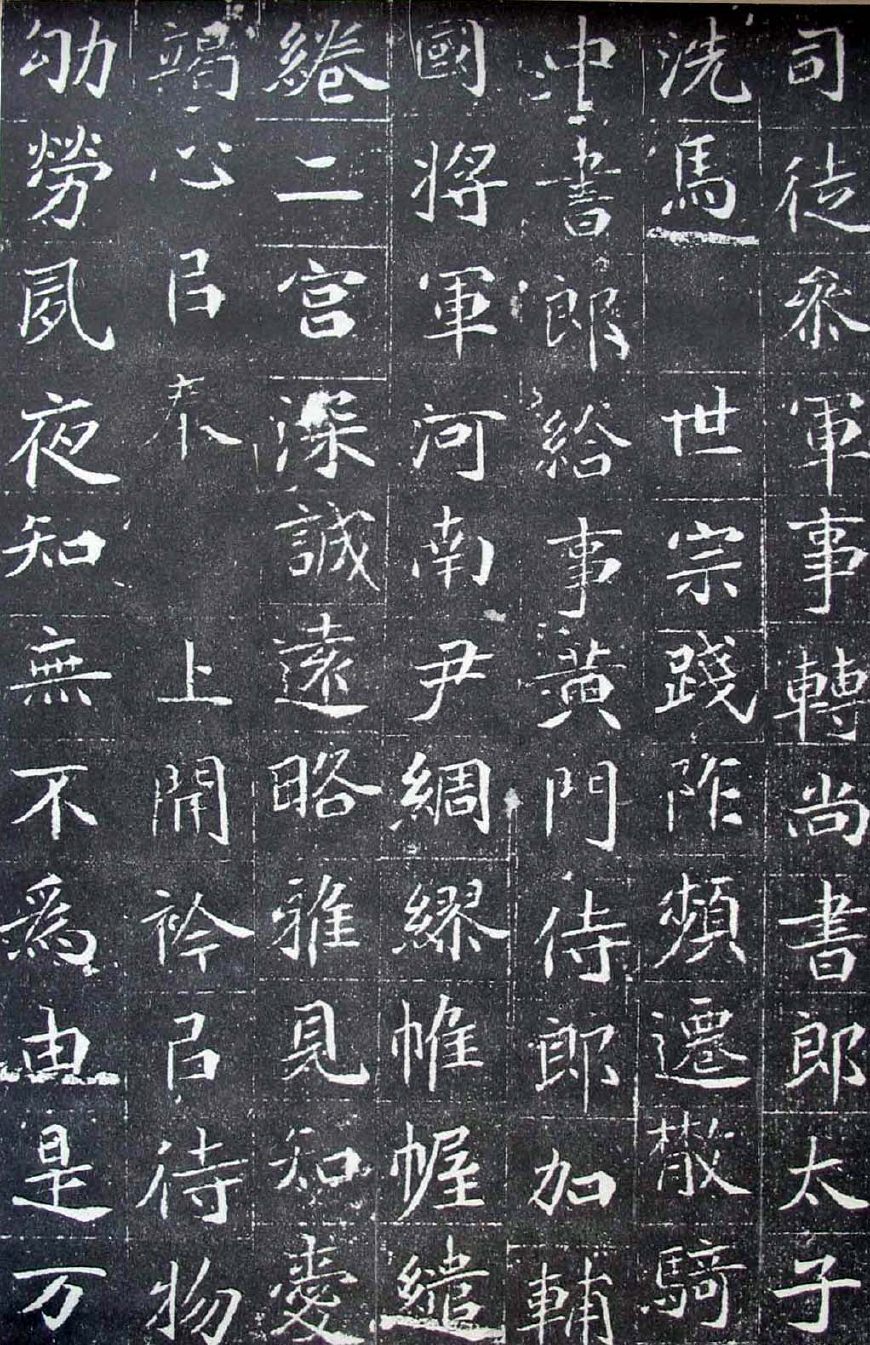 司徒叅軍事轉尚書郎太子
洗馬 世宗踐阼頻遷散騎
中書郎給事黃門侍郎加輔
國將軍河南尹綢繆帷幄繾
綣二宮深誠遠略雅見知愛
竭心㠯奉 上開衿㠯待物
劬勞夙夜知無不爲由是万